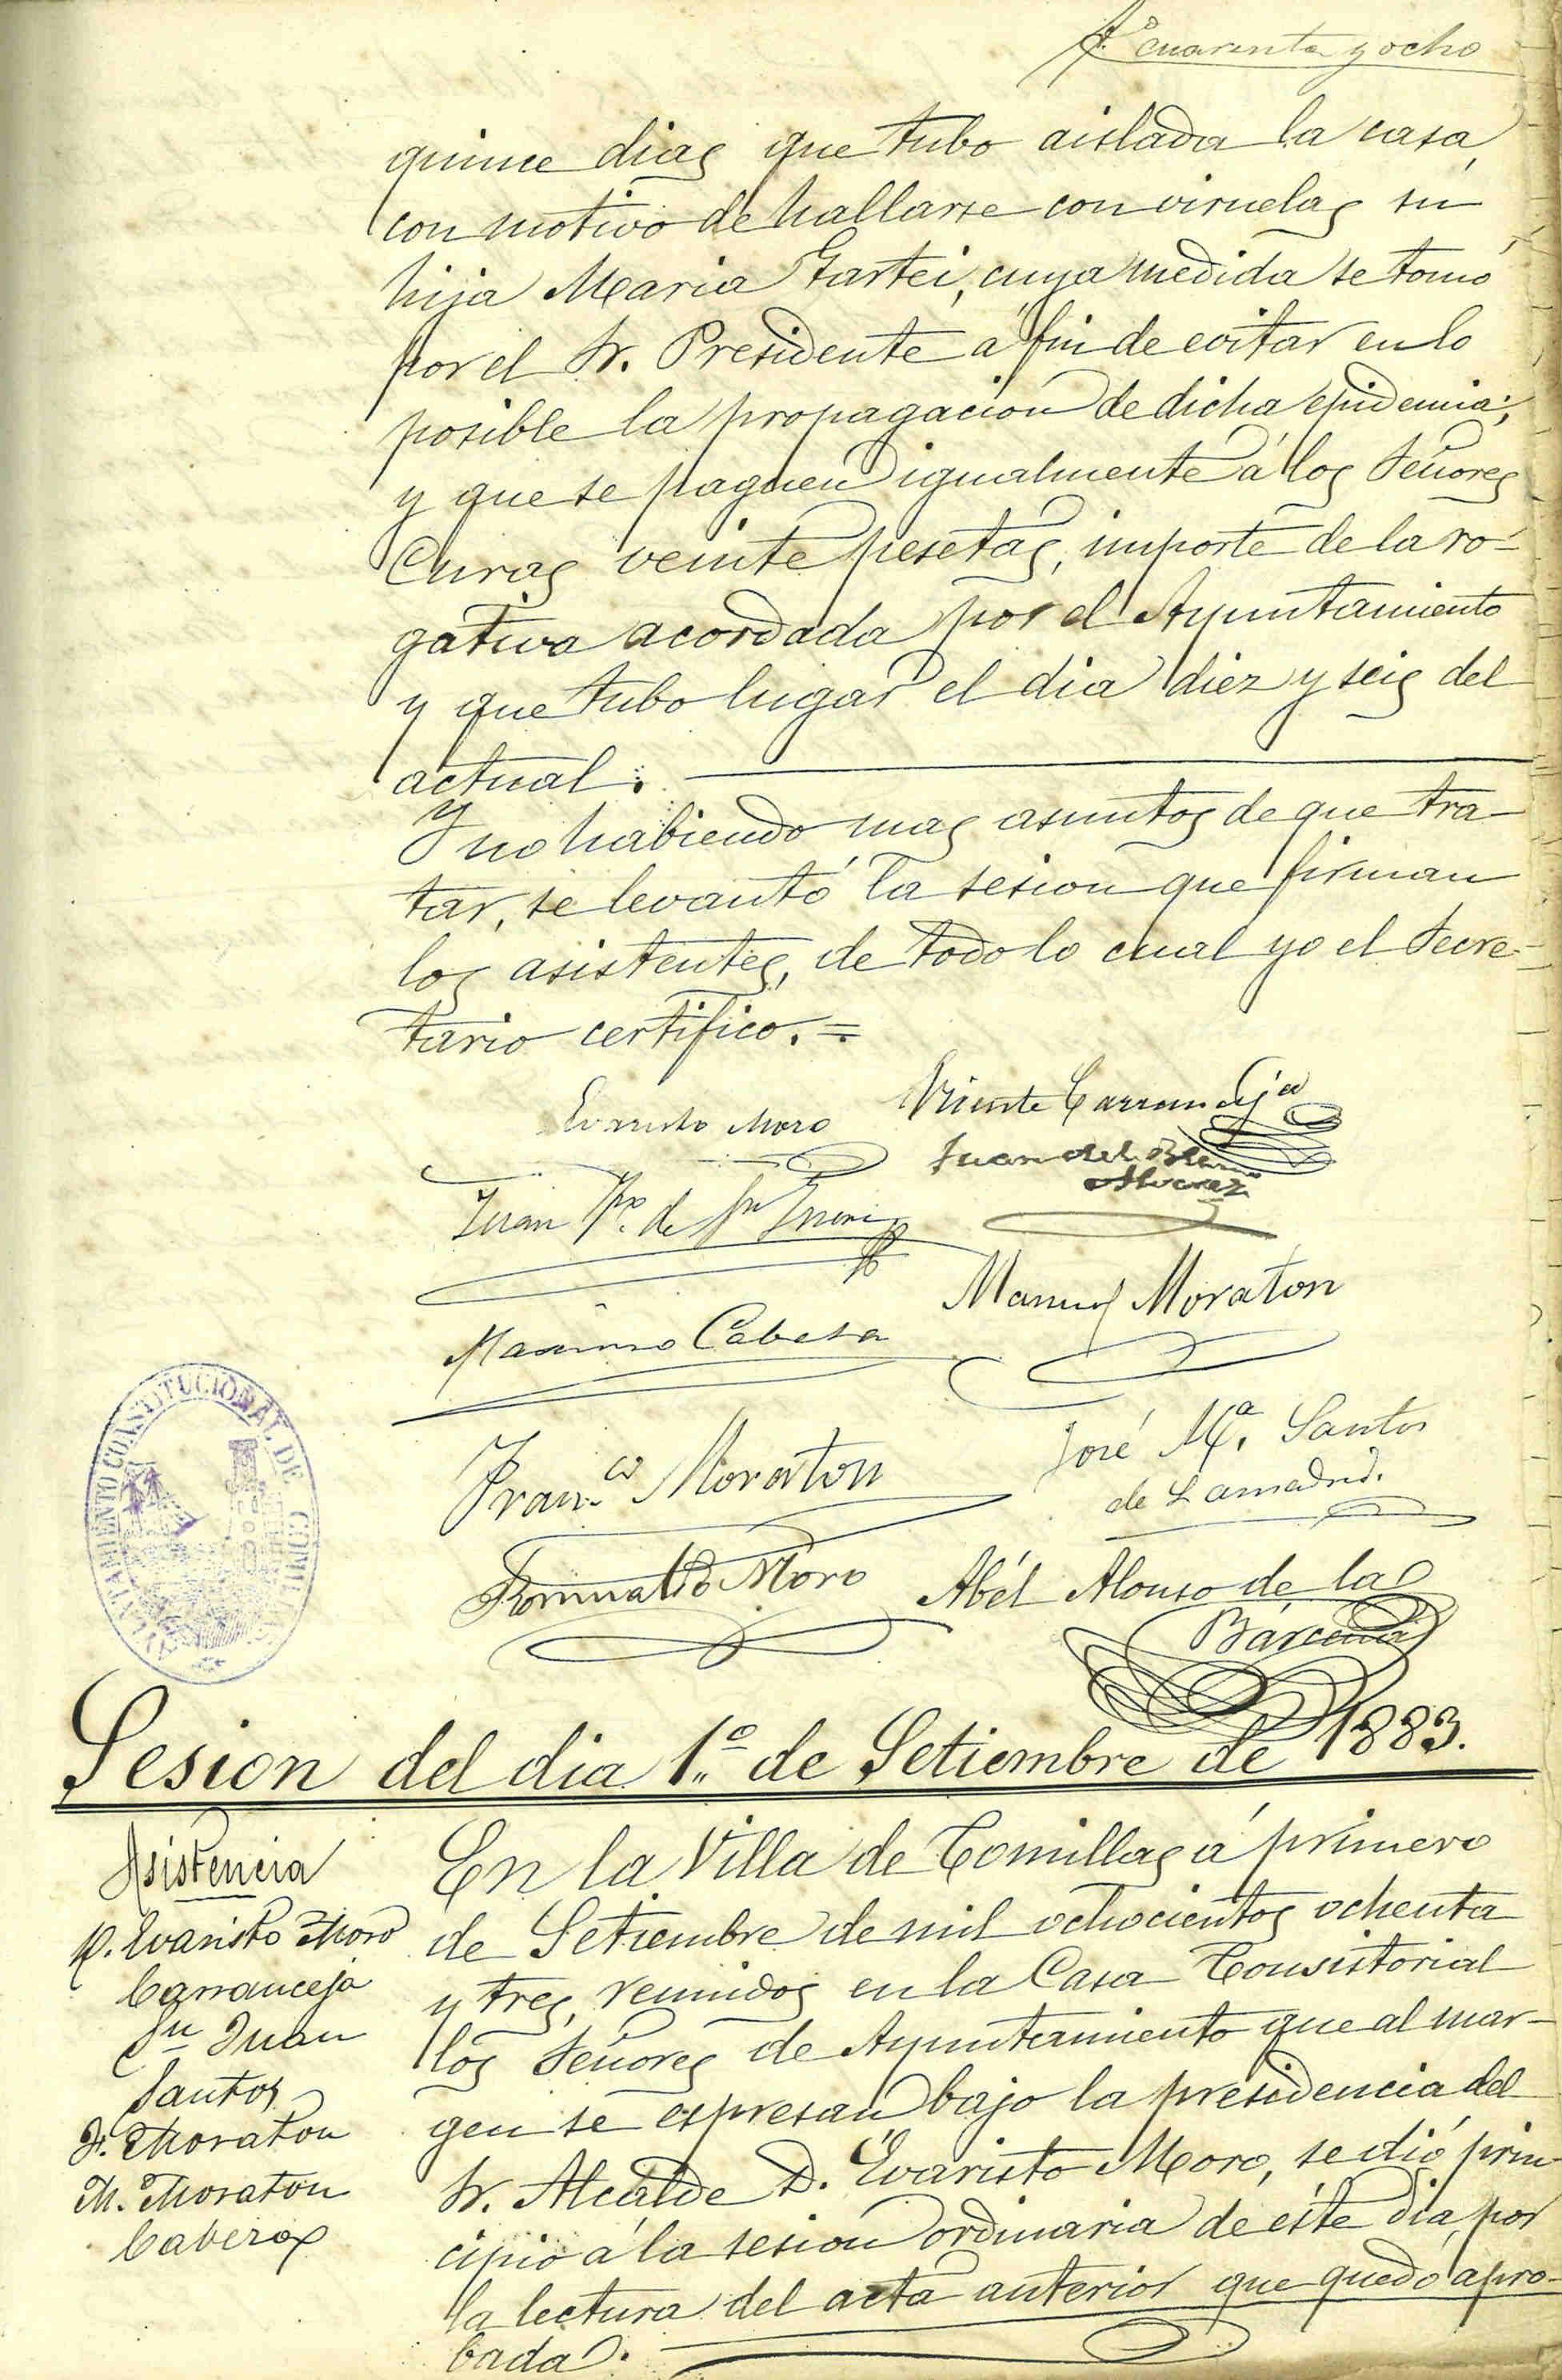 Fº cuarenta y ocho
quince dias que tubo aislada la casa,
con motivo de hallarse con viruelas su
hija Maria Gartei, cuya medida se tomó
por el Sr. Presidente á fin de evitar en lo
posible la propagacion de dicha epidemia;
y que se paguen igualmente á los Señores
Curas veinte pesetas, importe de la ro-
gativa acordada por el Ayuntamiento
y que tubo lugar el dia diez y seis del
actual.
Y no habiendo mas asuntos de que tra-
tar, se levantó la sesion que firman
los asistentes, de todo lo cual yo el Secre-
tario certifico. =
Evaristo Moro
Vicente Carranceja
Juan del Blanco
Alvarez
Juan
Maximo Cabeza
Manuel Moraton
Franco Moraton
José Mª. Santos
de Lamadrid.
Romualdo Moro
Abél Alonso de la
Bárcena
AYUNTAMIENTO CONSTITUCIONAL DE COMILLAS
Sesion del dia 1º de Setiembre de 1883.
Asistencia
D. Evaristo Moro
Carranceja
Sn Juan
Santos
F. Moraton
M. Moraton
Cabeza
En la Villa de Comillas á primero
de Setiembre de mil ochocientos ochenta
y tres, reunidos en la Casa Consistorial
los Señores de Ayuntamiento que al mar-
gen se espresan bajo la presidencia del
Sr. Alcalde D. Evaristo Moro, se dió prin-
cipio á la sesion ordinaria de éste dia, por
la lectura del acta anterior que quedó apro-
bada.